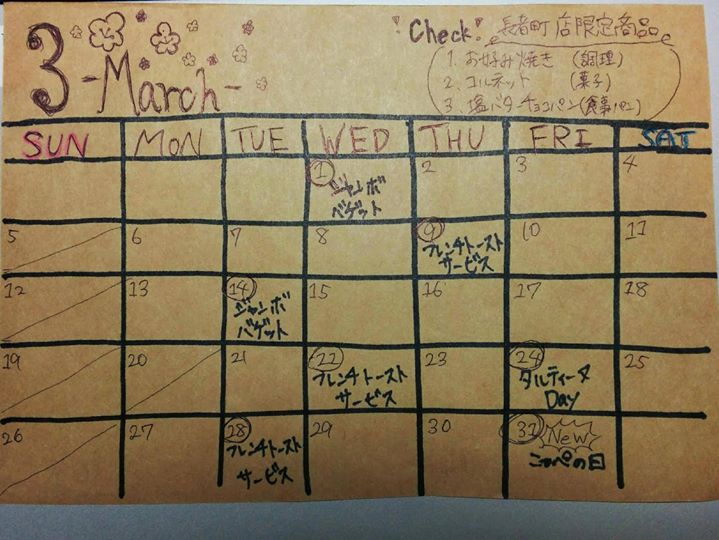 3 -March-
Check! 長者町店限定商品
1. お好み焼き (調理)
2. コルネット (菓子)
3. 塩バターチョコパン(食事パン)
SUN MON TUE WED THU FRI SAT
1 2 3 4
ジャンボ
バゲット
5 6 7 8 9 10 11
フレンチトースト
サービス
12 13 14 15 16 17 18
ジャンボ
バゲット
19 20 21 22 23 24 25
フレンチトースト タルティーヌ
サービス Day
26 27 28 29 30 31 New
フレンチトースト コッペの日
サービス